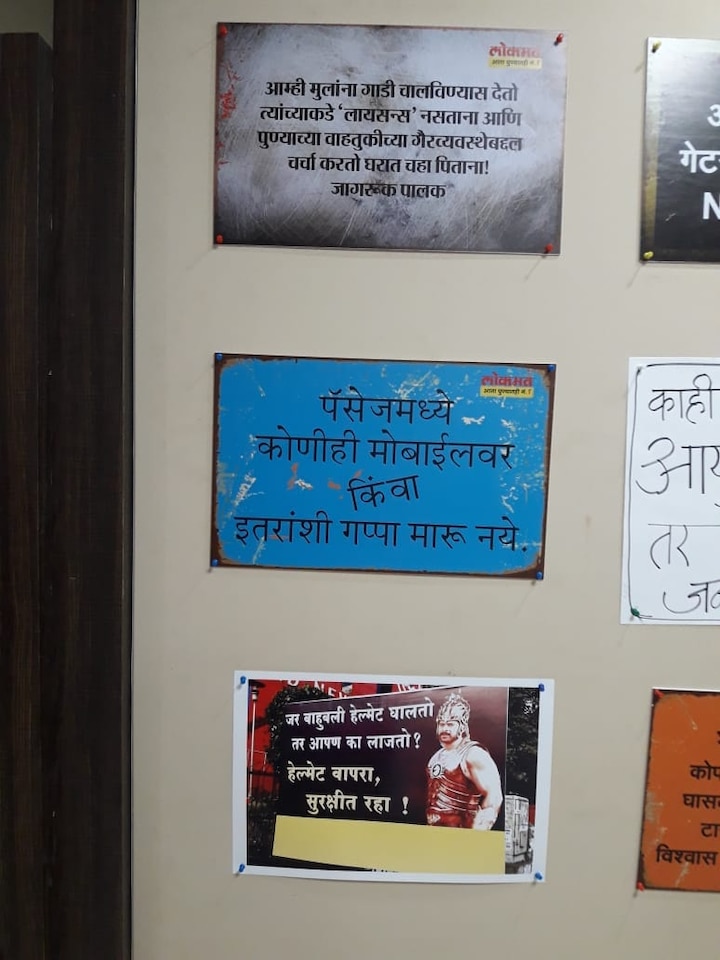 लोकमत
आता पुण्यातही नं. १
आम्ही मुलांना गाडी चालविण्यास देतो
त्यांच्याकडे 'लायसन्स' नसताना आणि
पुण्याच्या वाहतुकीच्या गैरव्यवस्थेबद्दल
चर्चा करतो घरात चहा पिताना!
जागरूक पालक
गेट
N
लोकमत
आता पुण्यातही नं. १
पॅसेजमध्ये
कोणीही मोबाईलवर
किंवा
इतरांशी गप्पा मारू नये.
काही
आयु
तर
जर बाहुबली हेल्मेट घालतो
तर आपण का लाजतो?
हेल्मेट वापरा,
सुरक्षीत रहा !
कोप
घास
टा
विश्वास